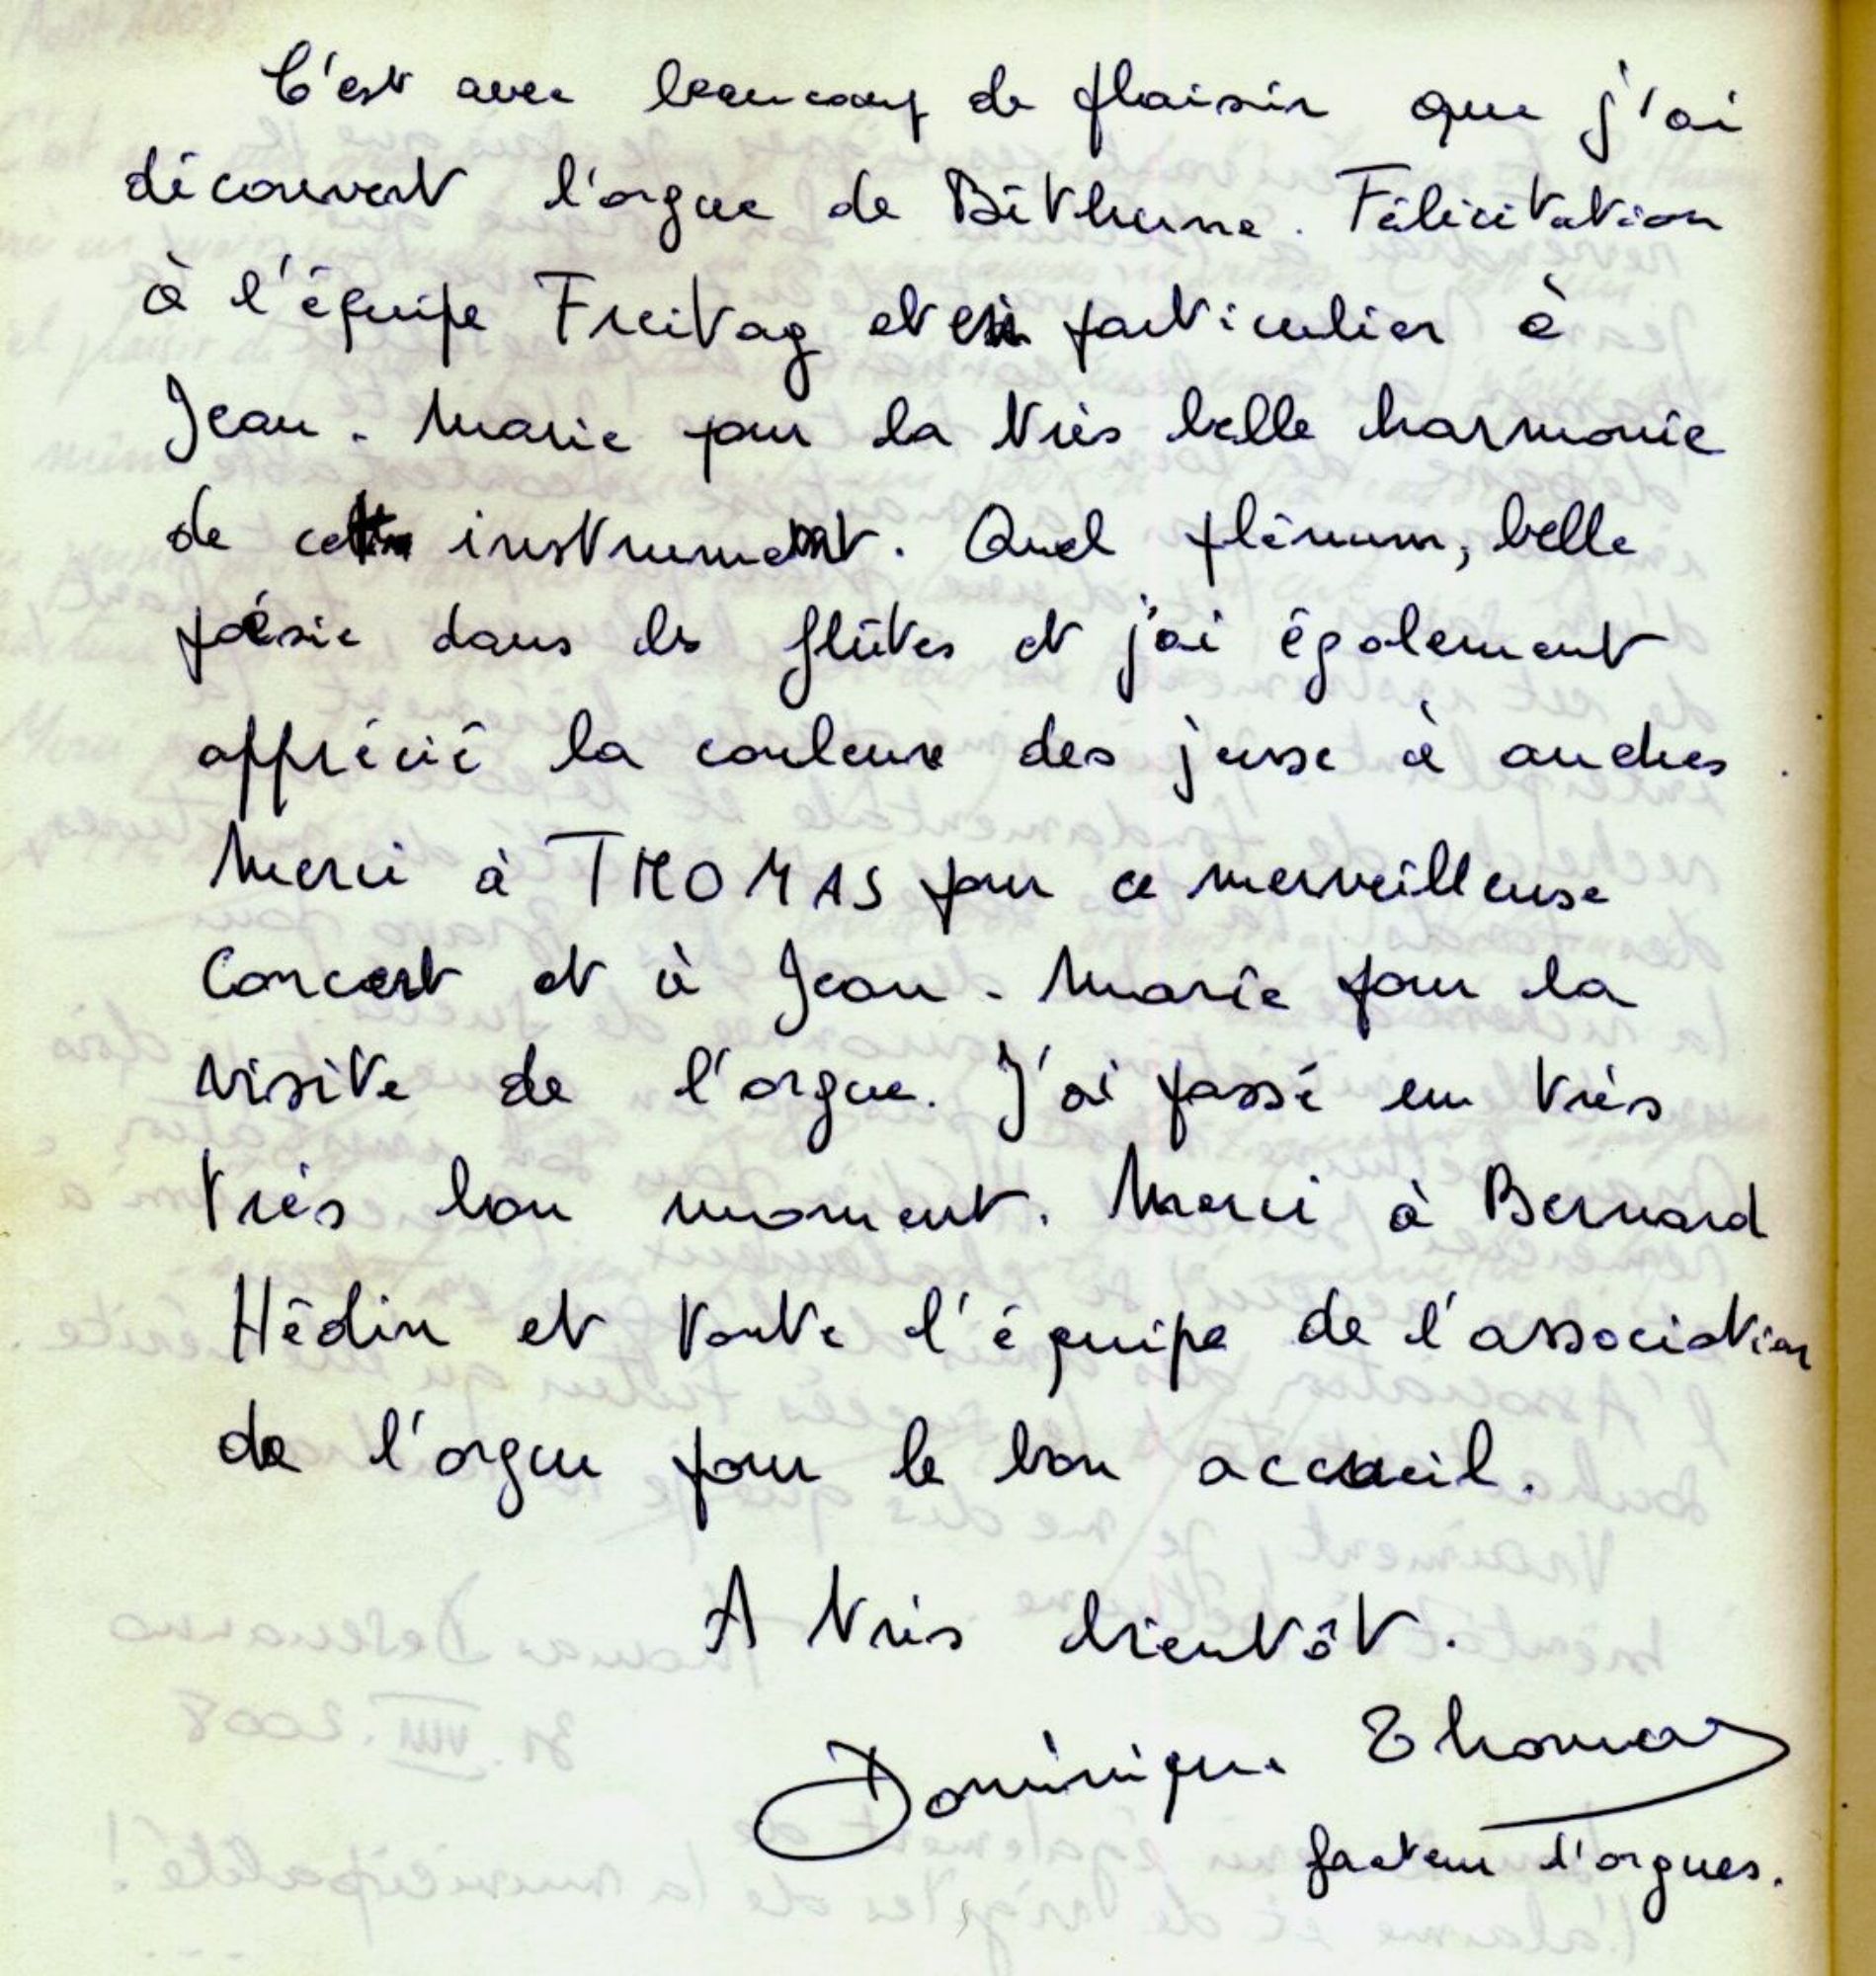 C'est avec beaucoup de plaisir que j'ai
découvert l'orgue de Béthune. Félicitation
à l'équipe Freitag et en particulier à
Jean-Marie pour la très belle harmonie
de cet instrument. Quel plénum, belle
poésie dans les flûtes et j'ai également
apprécié la couleure des jeuse à anches.
Merci à THOMAS pour ce merveilleuse
Concert et à Jean-Marie pour la
visite de l'orgue. J'ai passé un très
très bon moment. Merci à Bernard
Hédin et toute l'équipe de l'association
de l'orgue pour le bon accueil.
A très bientôt.
Dominique Thomas
facteur d'orgues.